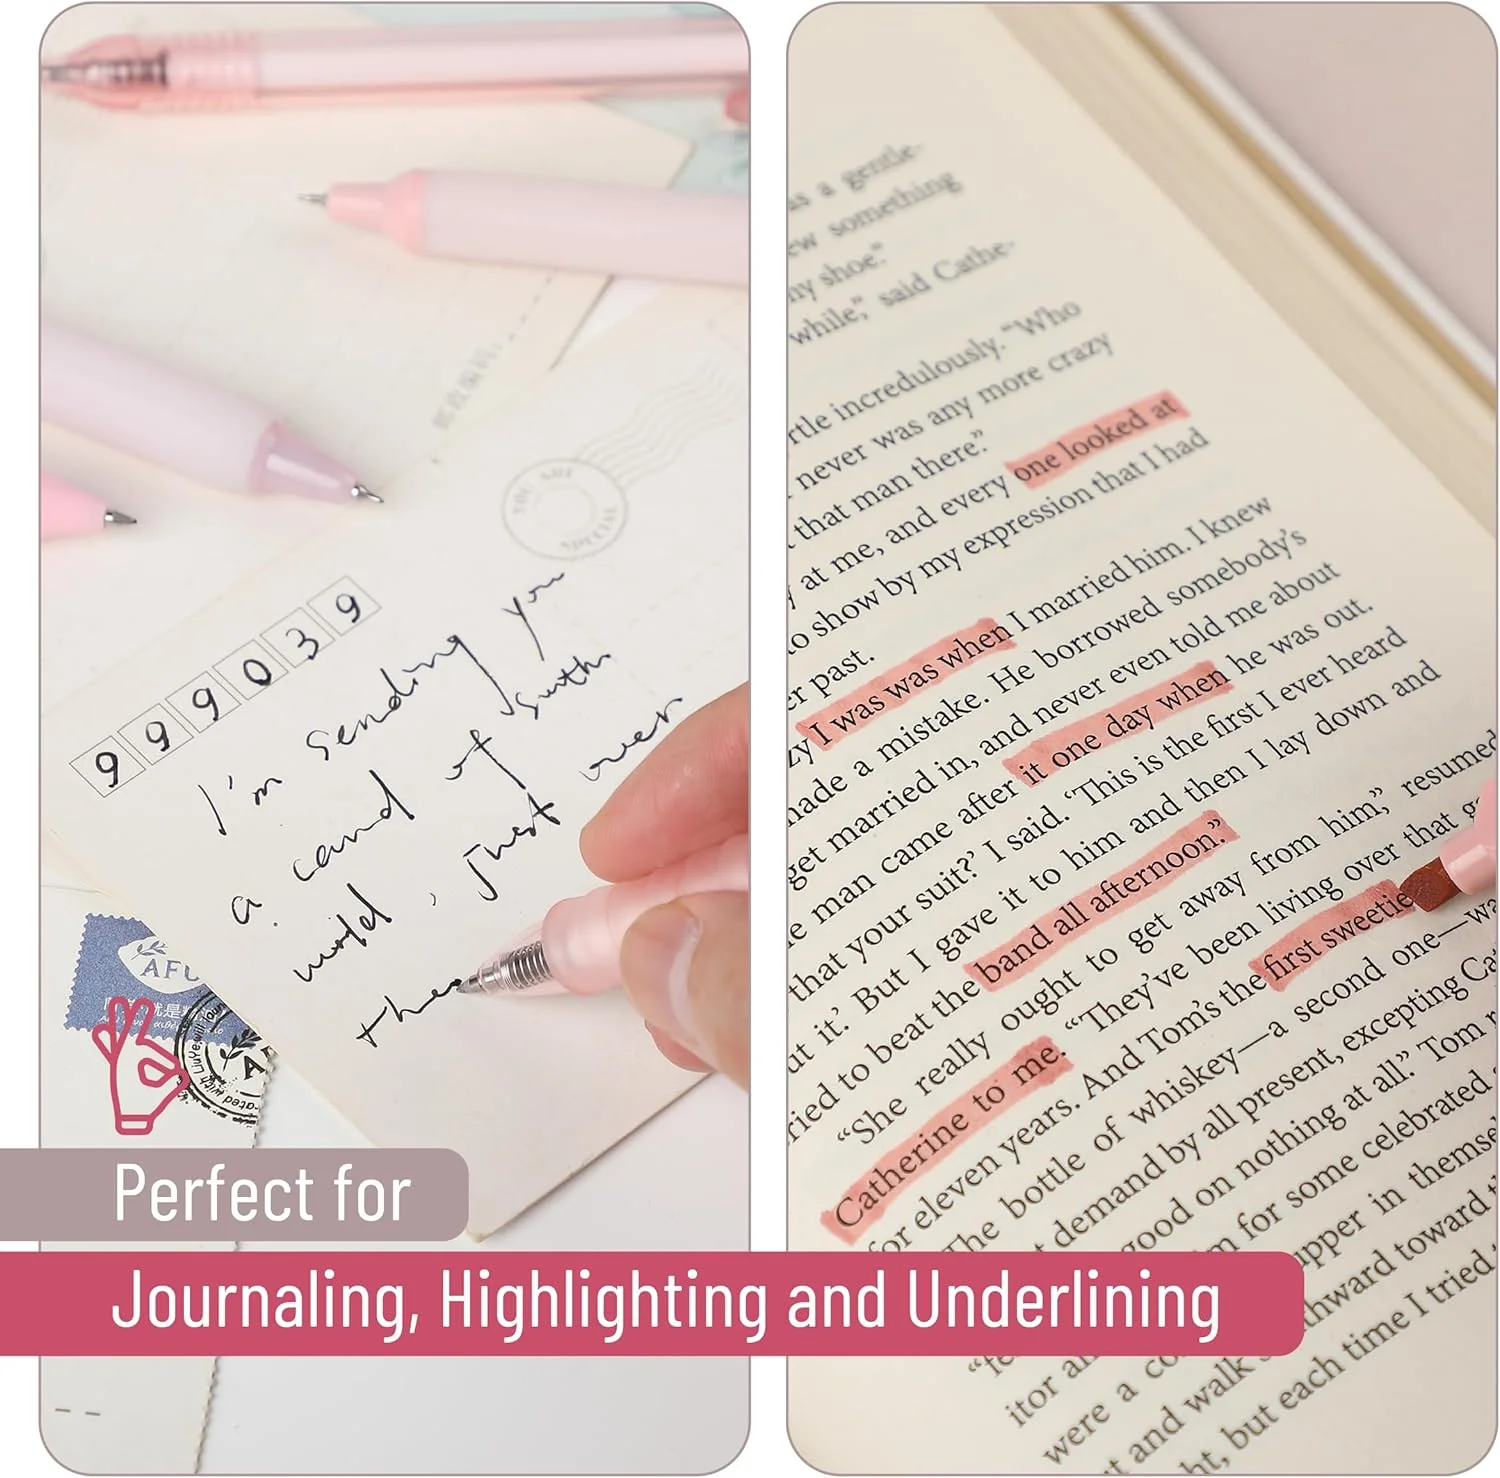 SPECIAL
邮政编码:
9 9 9 0 3 9
I'm sending you
a card of
just over
AFU
Perfect for
Journaling, Highlighting and Underlining
as a gentle-
something
my shoe.”
while,” said Cathe-
incredulously. “Who
never was any more crazy
that man there.”
at me, and every one looked at
to show by my expression that I had
past.
I was was when I married him. I knew
made a mistake. He borrowed somebody's
get married in, and never even told me about
man came after it one day when he was out.
that your suit?' I said. 'This is the first I ever heard
it.' But I gave it to him and then I lay down and
to beat the band all afternoon.”
“She really ought to get away from him,” resumed
Catherine to me. “They've been living over that
for eleven years. And Tom's the first sweetie
The bottle of whiskey—a second one—
demand by all present, excepting
good on nothing at all.” Tom
for some celebrated
upper in
toward
itor
were a
and walk
but each time I tried